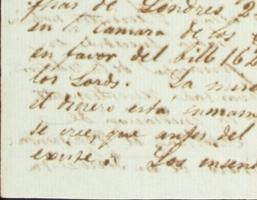 de Londres 2
en la Camara de los
en favor del bill 162
los Lords. La
el dinero está
se cree, que antes del
existe. Los